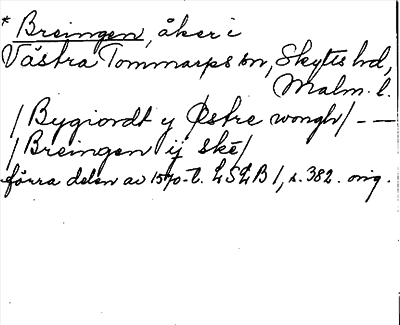 * Breingen, åker i
Västra Tommarps sn, Skytts hd,
Malm. l.
/ Bygiordt y Østre wongh / – –
/ Breingen ij skē /
förra delen av 1570-t. LSLB 1, s. 382. orig.